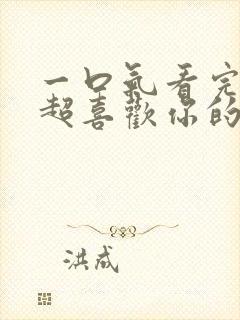 一口氣看完
超喜歡你的
洪成